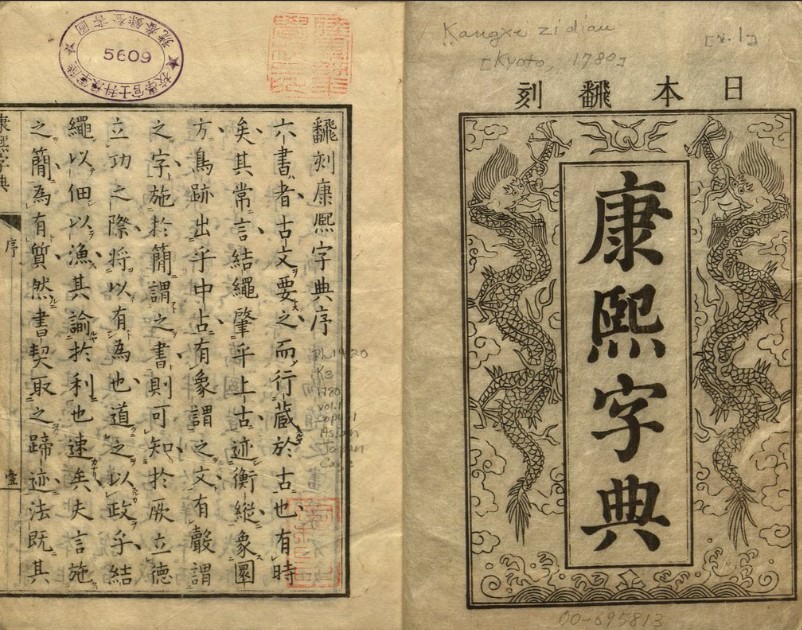 Kangxi zidian
[v.1]
[Kyoto, 1780]
日本飜刻
康熙字典
00-695813
5609
飜刻康熙字典序
六書者古文要之而行藏於古也有時
矣其常言結繩肇乎上古迹衡縱象圜
方鳥跡出乎中古有象謂之文有聲謂
之字施於簡謂之書則可知於厥立德
立功之際將以有為也道之以政乎結
繩以佃以漁其諭於利也速矣夫言施
之簡為有質然書契取之蹄迹法既其
康熙字典
序
壹
1780
vol.1
Copy 1
Asian
Japan